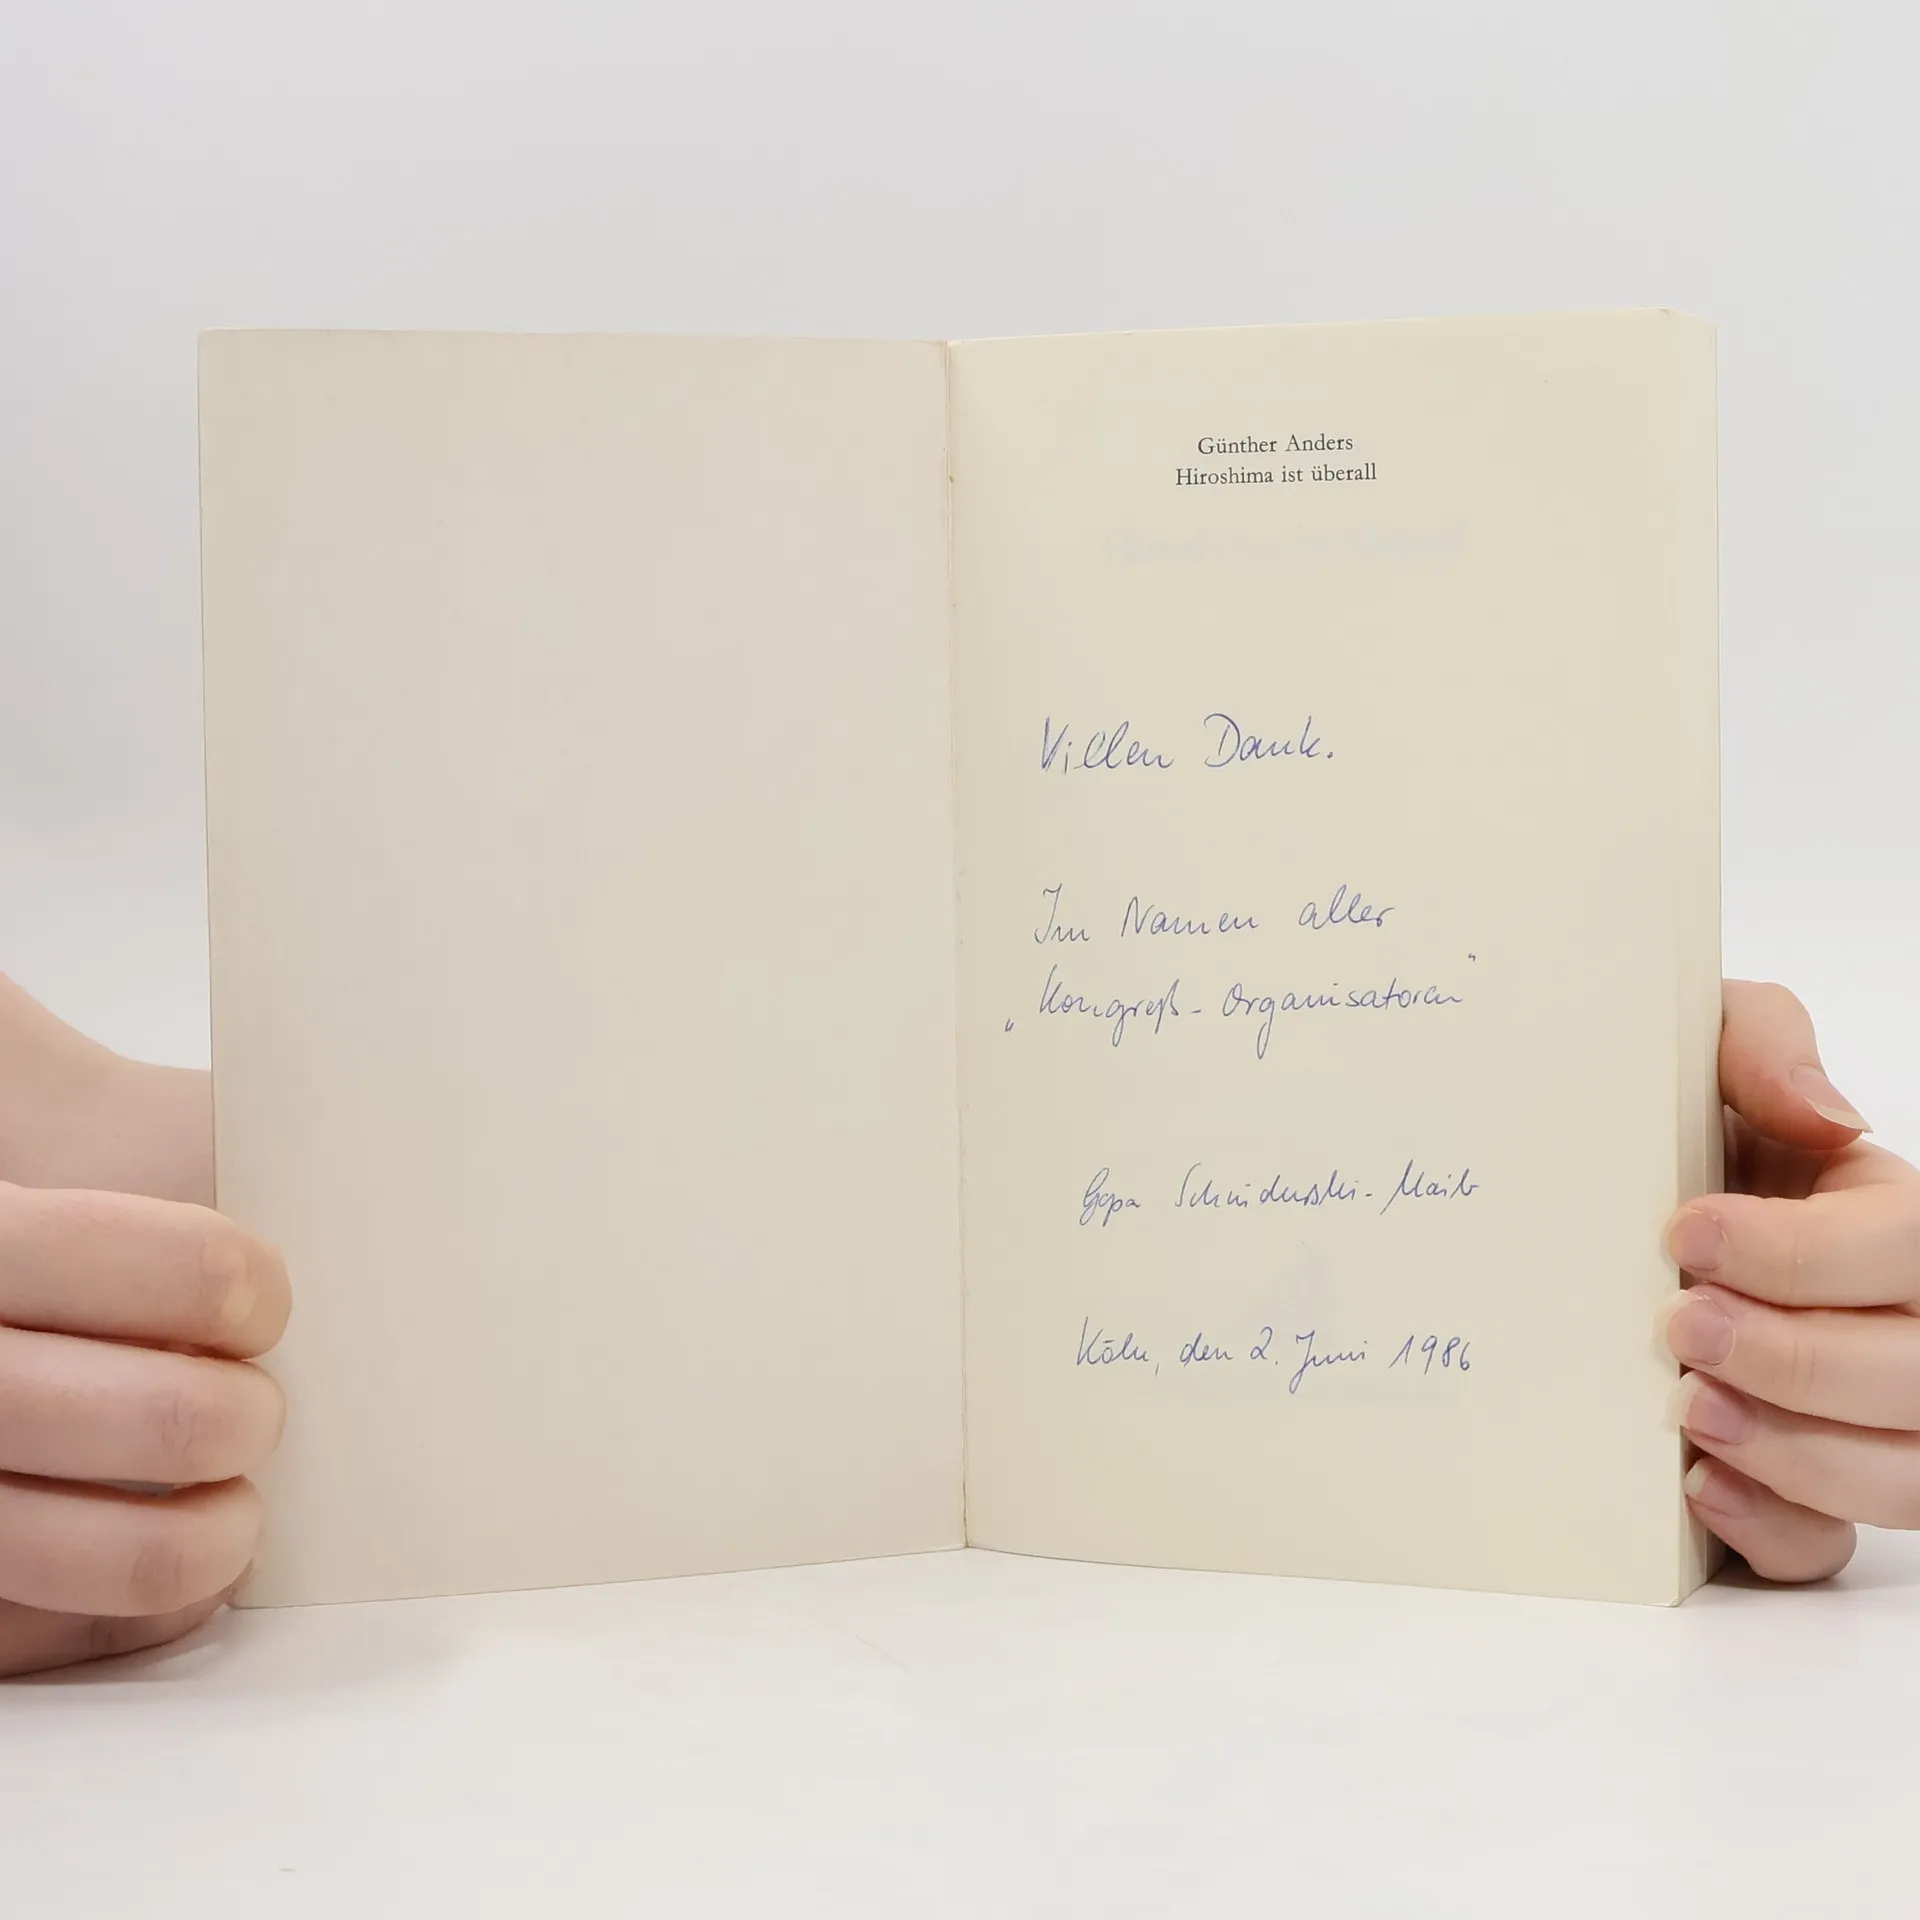 Günther Anders
Hiroshima ist überall
Vielen Dank.
Im Namen aller
„Kongreß-Organisatoren"
Köln, den 2. Juni 1986